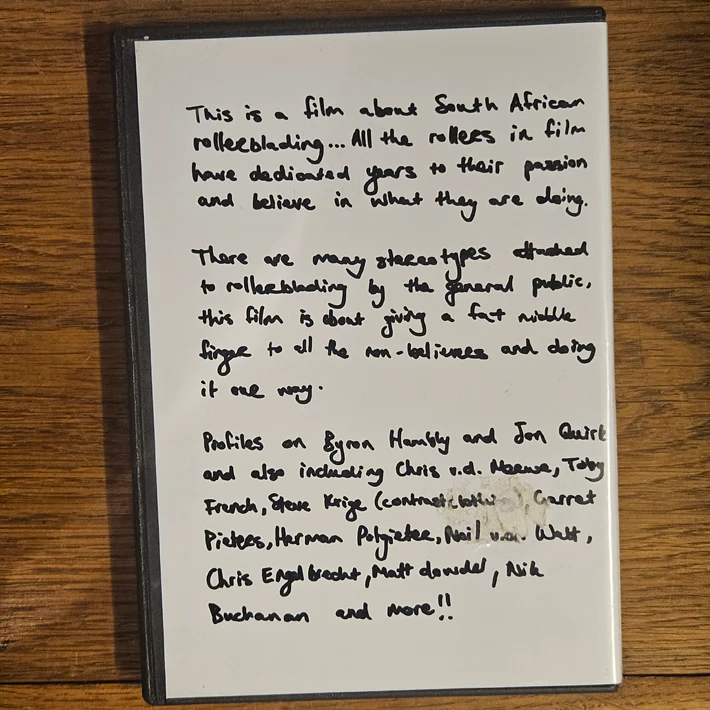 This is a film about South African
rollerblading... All the rollers in film
have dedicated years to their passion
and believe in what they are doing.
There are many stereotypes attached
to rollerblading by the general public,
this film is about giving a fat middle
finger to all the non-believers and doing
it our way.
Profiles on Byron Hambly and Jon Quirk
and also including Chris v.d. Merwe, Toby
French, Steve Krige (contrast clothing), Garret
Pieters, Herman Potgieter, Neil v.d. Walt,
Chris Engelbrecht, Matt , Nik
Buchanan and more!!